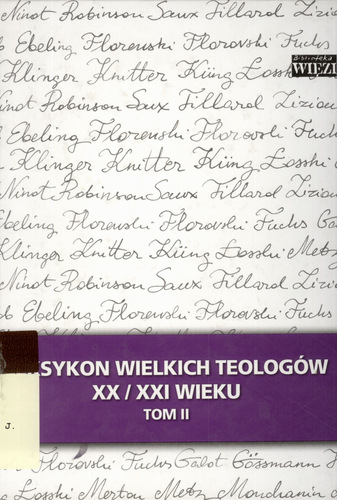 Ninot Robinson Saux Tillard Zizio
Biblioteka
WIĘZI
Ebeling Florenski Florovski Fuchs
Klinger Knitter Küng Losski
Ninot Robinson Saux Tillard Ziziou
Ebeling Florenski Florovski Fuchs
Klinger Knitter Küng Łosski
Ninot Robinson Sawx Tillard Ziziou
Ebeling Florewski Florovski Fuchs
Klinger Knitter Küng Łosski Metz
Ninot Robinson Saux Tillard Ziziou
Ebeling Florewski Florovski Fuchs
SYKON WIELKICH TEOLOGÓW
XX / XXI WIEKU
TOM II
J.
Florovski Fuchs Galot Gössmann
Losski Merton Metz Monchanin